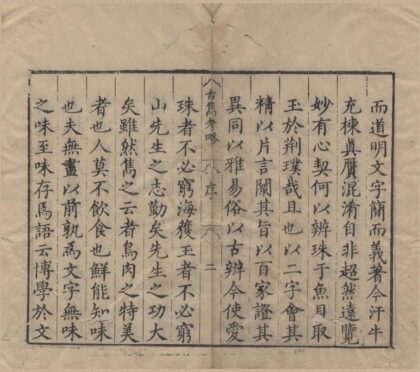 而道明文字簡而義著今汗牛
充棟真贋混淆自非超然遠覽
妙有心契何以辨珠于魚目取
玉於荆璞哉且也以二字會其
精以片言闡其旨以百家證其
異同以雅易俗以古辨今使愛
古雋考略
序
二
珠者不必窮海獲玉者不必窮
山先生之志勤矣先生之功大
矣雖然雋之云者鳥肉之特美
者也人莫不飲食也鮮能知味
也夫無畫以前孰為文字無味
之味至味存焉語云博學於文